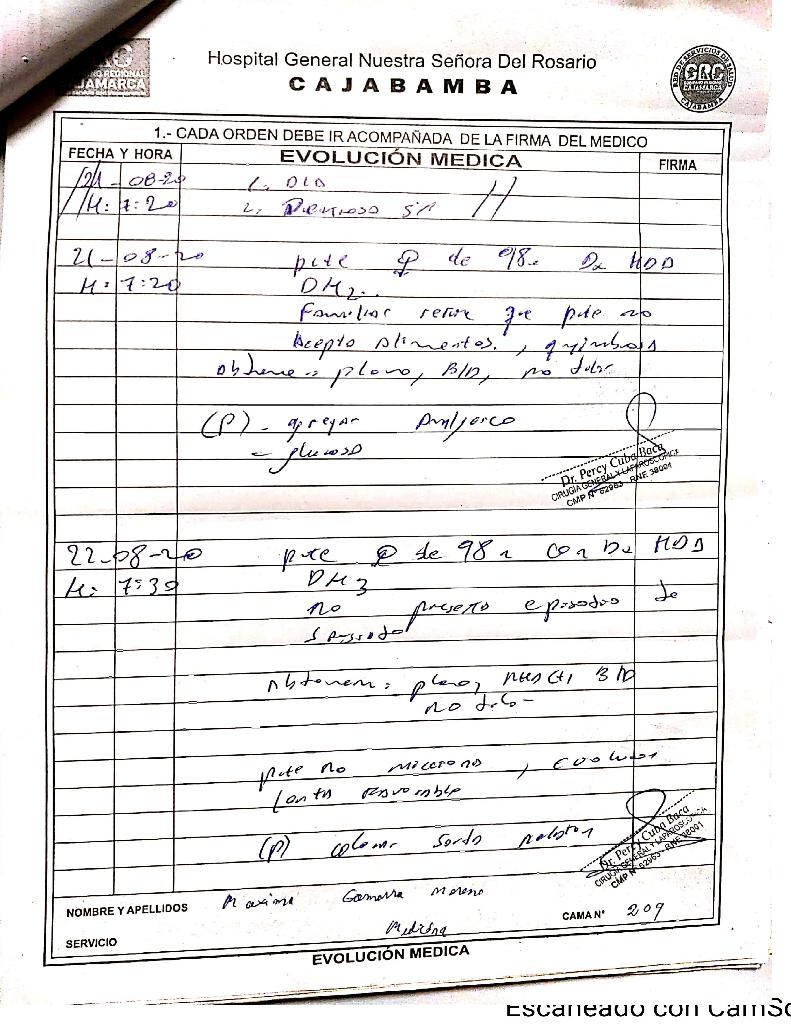 GRC
GOBIERNO REGIONAL
CAJAMARCA
Hospital General Nuestra Señora Del Rosario
CAJABAMBA
RED DE SERVICIOS DE SALUD
GRC
CAJAMARCA
CAJABAMBA
1.- CADA ORDEN DEBE IR ACOMPAÑADA DE LA FIRMA DEL MEDICO
FECHA Y HORA EVOLUCIÓN MEDICA FIRMA
21-08-20 1.
H: 7:20 2.
21-08-20 pcte ♀ de 98a Dx HDD
H: 7:20 DH2
Familiar refiere que pcte no
Acepta Alimentos,
Abdomen: plano, B/D, no dolor
(P) - agregar
- glucosa
Dr. Percy Cuba Baca
CIRUGIA GENERAL Y LAPAROSCOPICA
CMP N° 62963 - RNE 38001
22-08-20 pcte ♀ de 98a con Dx HDD
H: 7:30 DH3
no presento episodios de
sangrado
Abdomen: plano, B/D
no dolor
pcte no , evolucion
lenta favorable
(P) colocar sonda
Dr. Percy Cuba Baca
CIRUGIA GENERAL Y LAPAROSCOPICA
CMP N° 62963 - RNE 38001
NOMBRE Y APELLIDOS Maxima Gamarra Moreno
CAMA N° 209
SERVICIO Medicina
EVOLUCIÓN MEDICA
Escaneado con CamSc